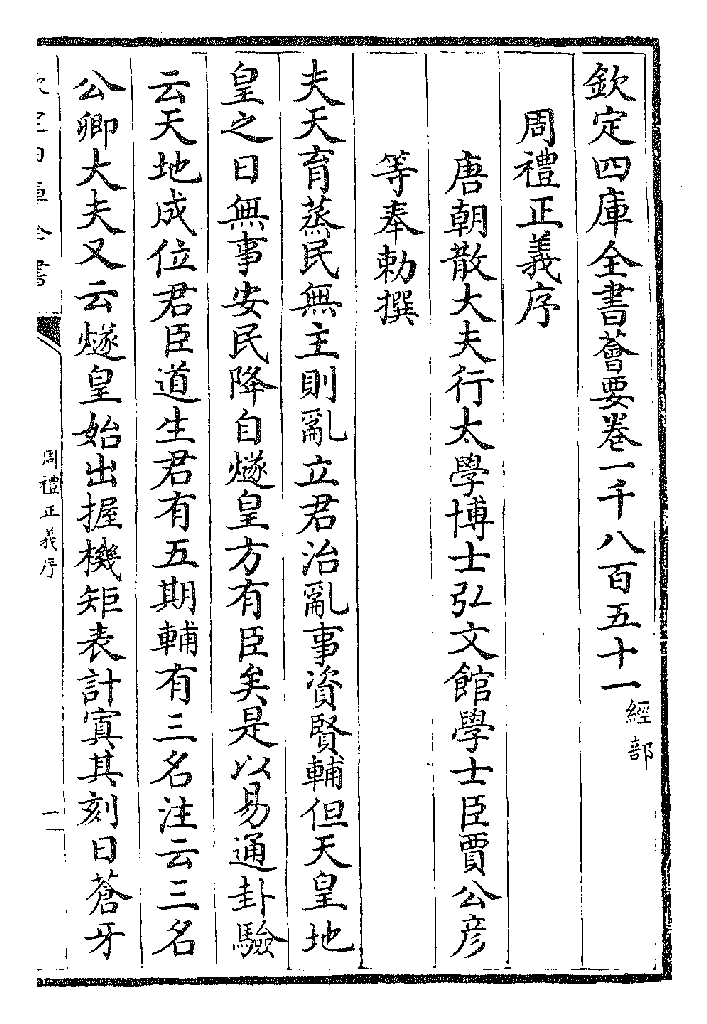 欽定四庫全書薈要卷一千八百五十一 經部
周禮正義序
唐朝散大夫行太學博士弘文館學士臣賈公彦
等奉勅撰
夫天育蒸民無主則亂立君治亂事資賢輔但天皇地
皇之日無事安民降自燧皇方有臣矣是以易通卦驗
云天地成位君臣道生君有五期輔有三名注云三名
公卿大夫又云燧皇始出握機矩表計寘其刻曰蒼牙
周禮正義序
一